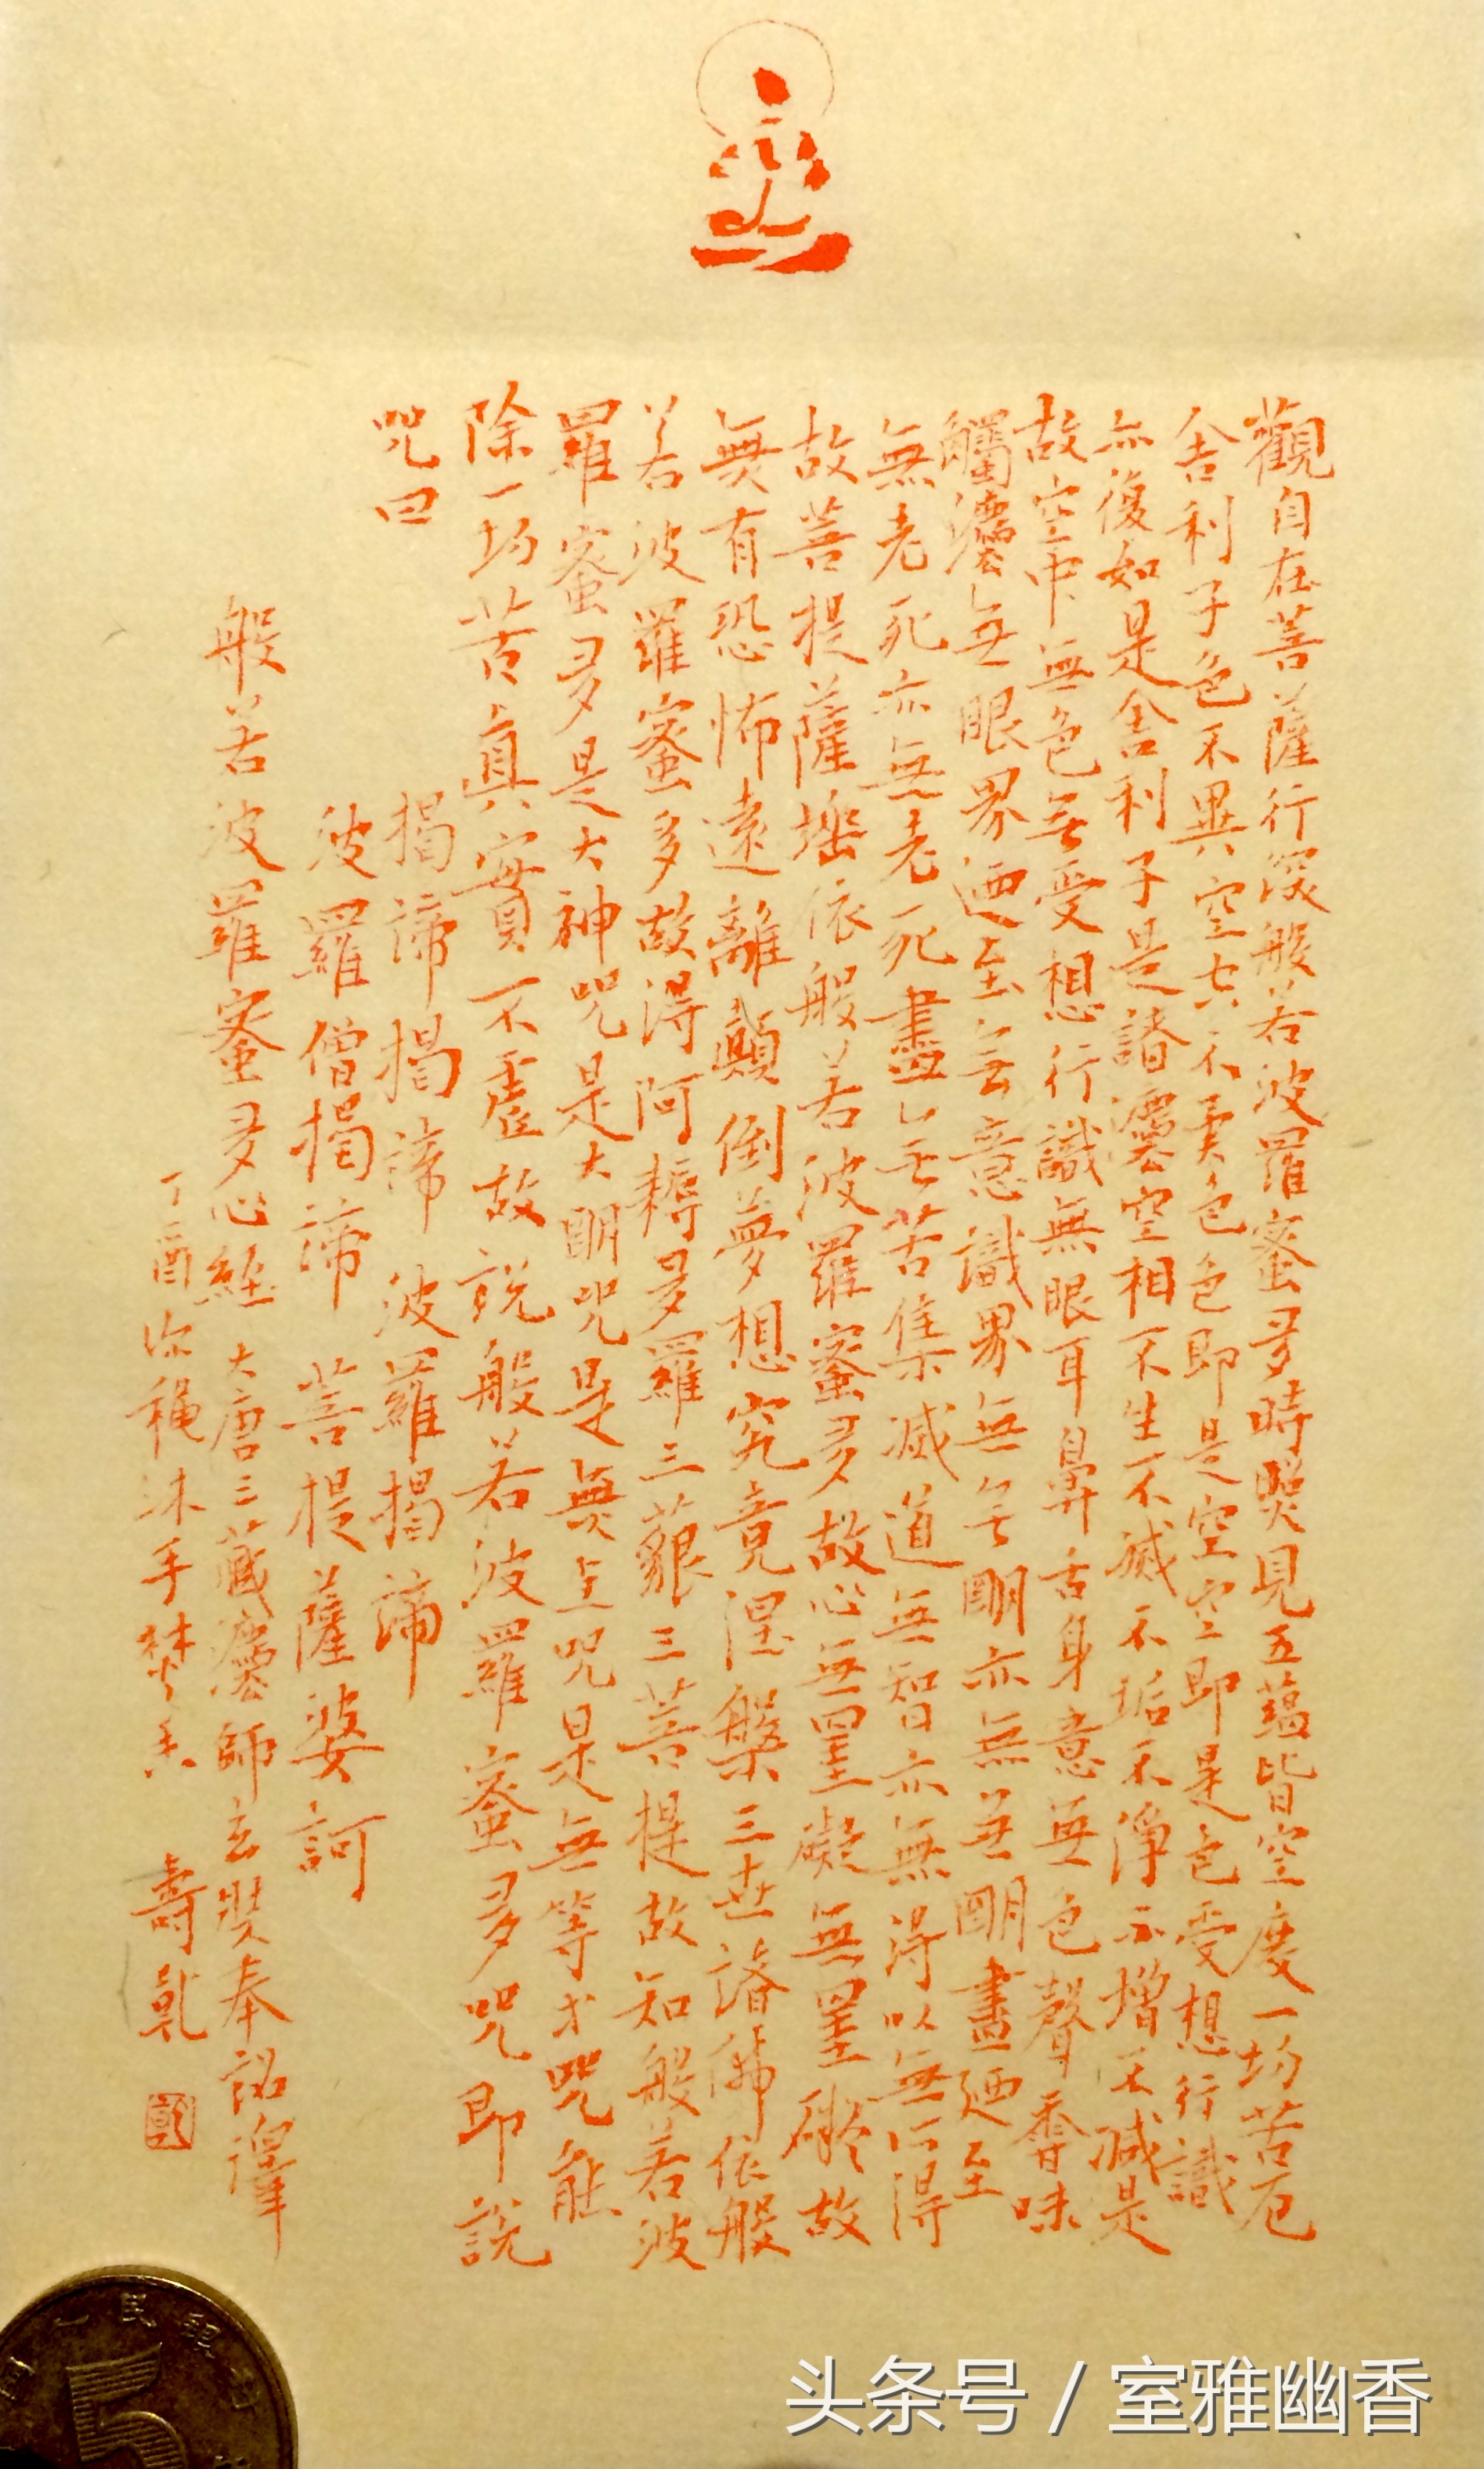 觀自在菩薩行深般若波羅蜜多時照見五蘊皆空度一切苦厄
舍利子色不異空空不異色色即是空空即是色受想行識
亦復如是舍利子是諸法空相不生不滅不垢不淨不增不減是
故空中無色無受想行識無眼耳鼻舌身意無色聲香味
觸法無眼界迺至無意識界無無明亦無無明盡迺至
無老死亦無老死盡無苦集滅道無智亦無得以無所得
故菩提薩埵依般若波羅蜜多故心無罣礙無罣礙故
無有恐怖遠離顛倒夢想究竟涅槃三世諸佛依般
若波羅蜜多故得阿耨多羅三藐三菩提故知般若波
羅蜜多是大神咒是大明咒是無上咒是無等等咒能
除一切苦真實不虛故說般若波羅蜜多咒即說
咒曰
揭諦揭諦 波羅揭諦
波羅僧揭諦 菩提薩婆訶
般若波羅蜜多心經 大唐三藏法師玄奘奉詔譯
丁酉 沐手焚香 壽
民
5
头条号 / 室雅幽香